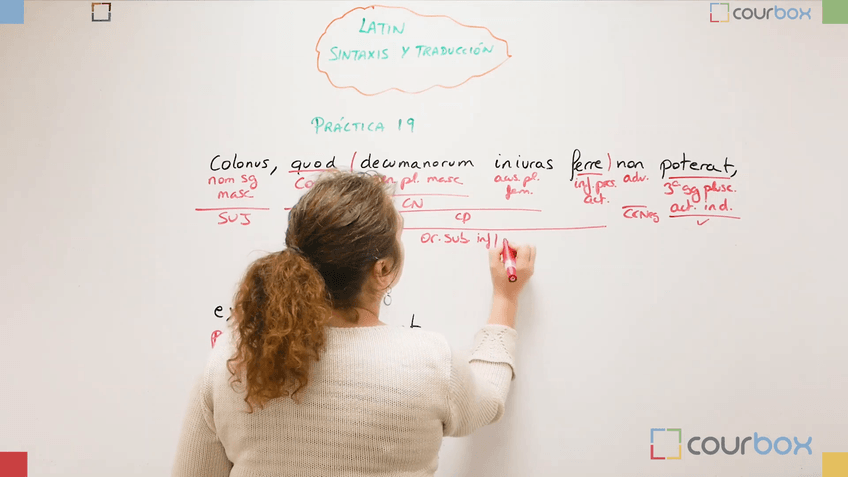 courbox
LATIN
SINTAXIS Y TRADUCCIÓN
PRÁCTICA 19
Colonus, quod (decumanorum iniuras ferre) non poterat,
nom sg pl. masc acus. pl. inf. pres. adv. 3ª sg plusc.
masc fem. act. act. ind.
CN CCNeg
SUJ CD
or. sub. inf
courbox